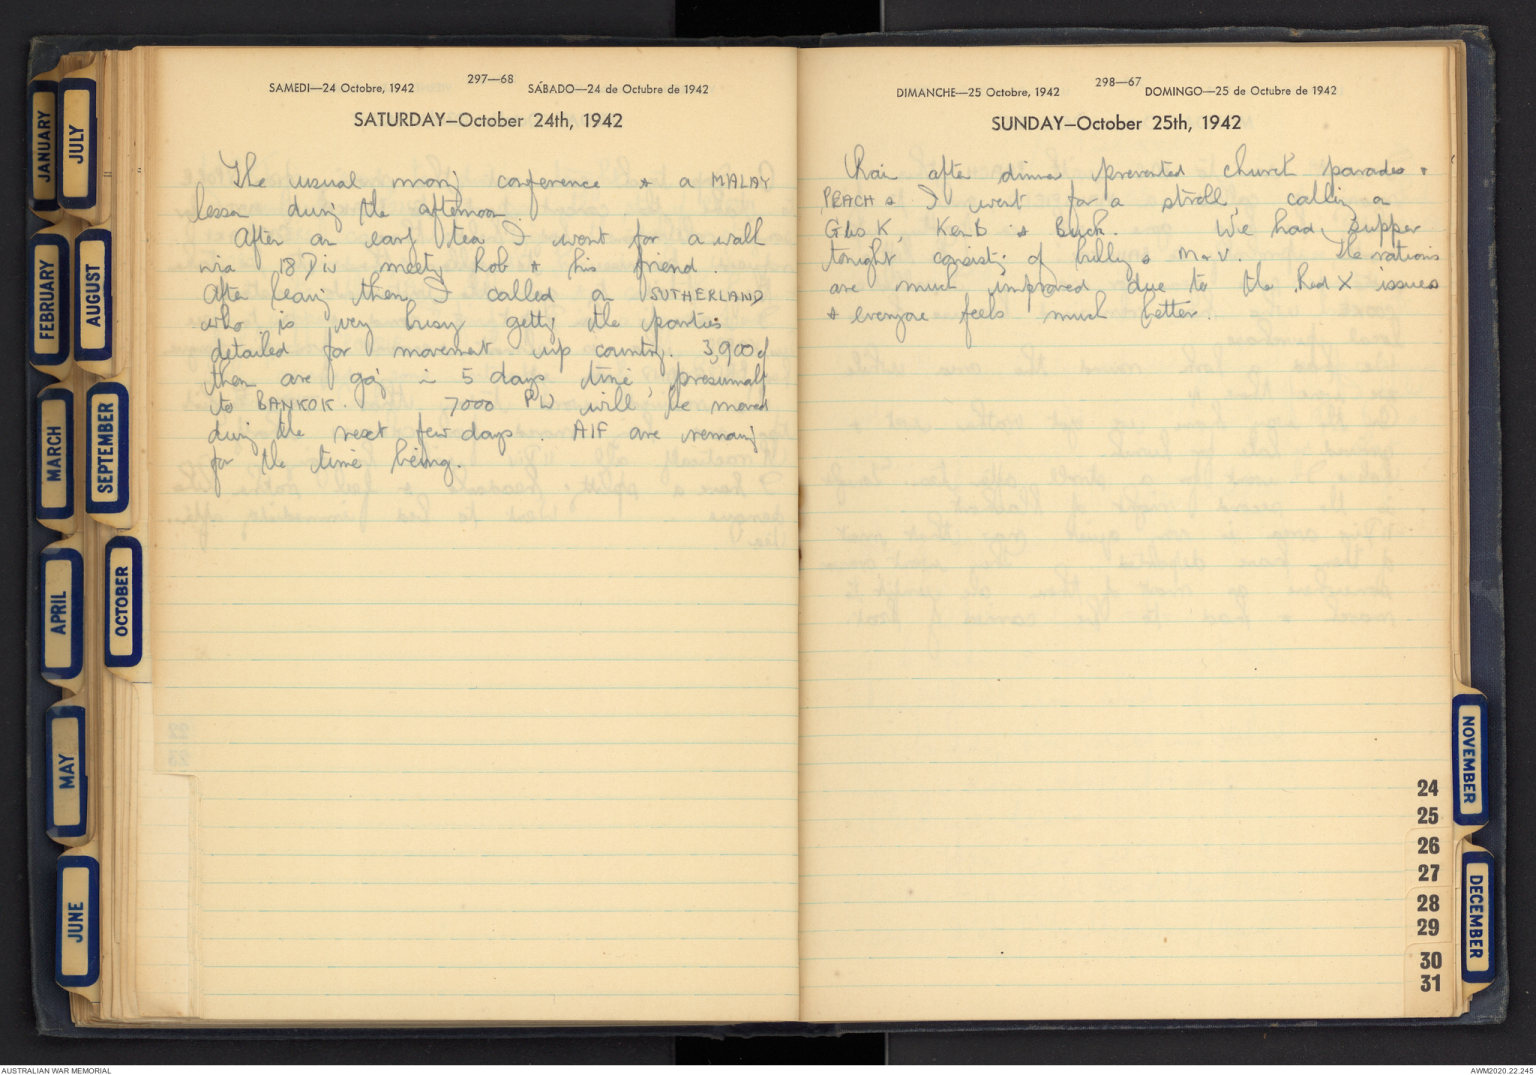 SAMEDI—24 Octobre, 1942
297—68
SÁBADO—24 de Octubre de 1942
SATURDAY—October 24th, 1942
The usual morning conference & a MALAY
lesson during the afternoon.
After an early tea I went for a walk
via 18 Div meeting Rob & his friend.
After leaving them I called on SUTHERLAND
who is very busy getting the parties
detailed for movement up country. 3,900 of
them are going in 5 days time, presumably
to BANKOK. 7000 PW will be moved
during the next few days. AIF are remaining
for the time being.
DIMANCHE—25 Octobre, 1942
298—67
DOMINGO—25 de Octubre de 1942
SUNDAY—October 25th, 1942
Rain after dinner prevented church parades &
PEACH & I went for a stroll, calling on
Glos K, Ken B & Buck. We had supper
tonight consisting of bully & M & V. The rations
are much improved due to the Red X issues
& everyone feels much better.
JANUARY
JULY
FEBRUARY
AUGUST
MARCH
SEPTEMBER
APRIL
OCTOBER
MAY
JUNE
NOVEMBER
DECEMBER
24
25
26
27
28
29
30
31
AUSTRALIAN WAR MEMORIAL
AWM2020.22.245